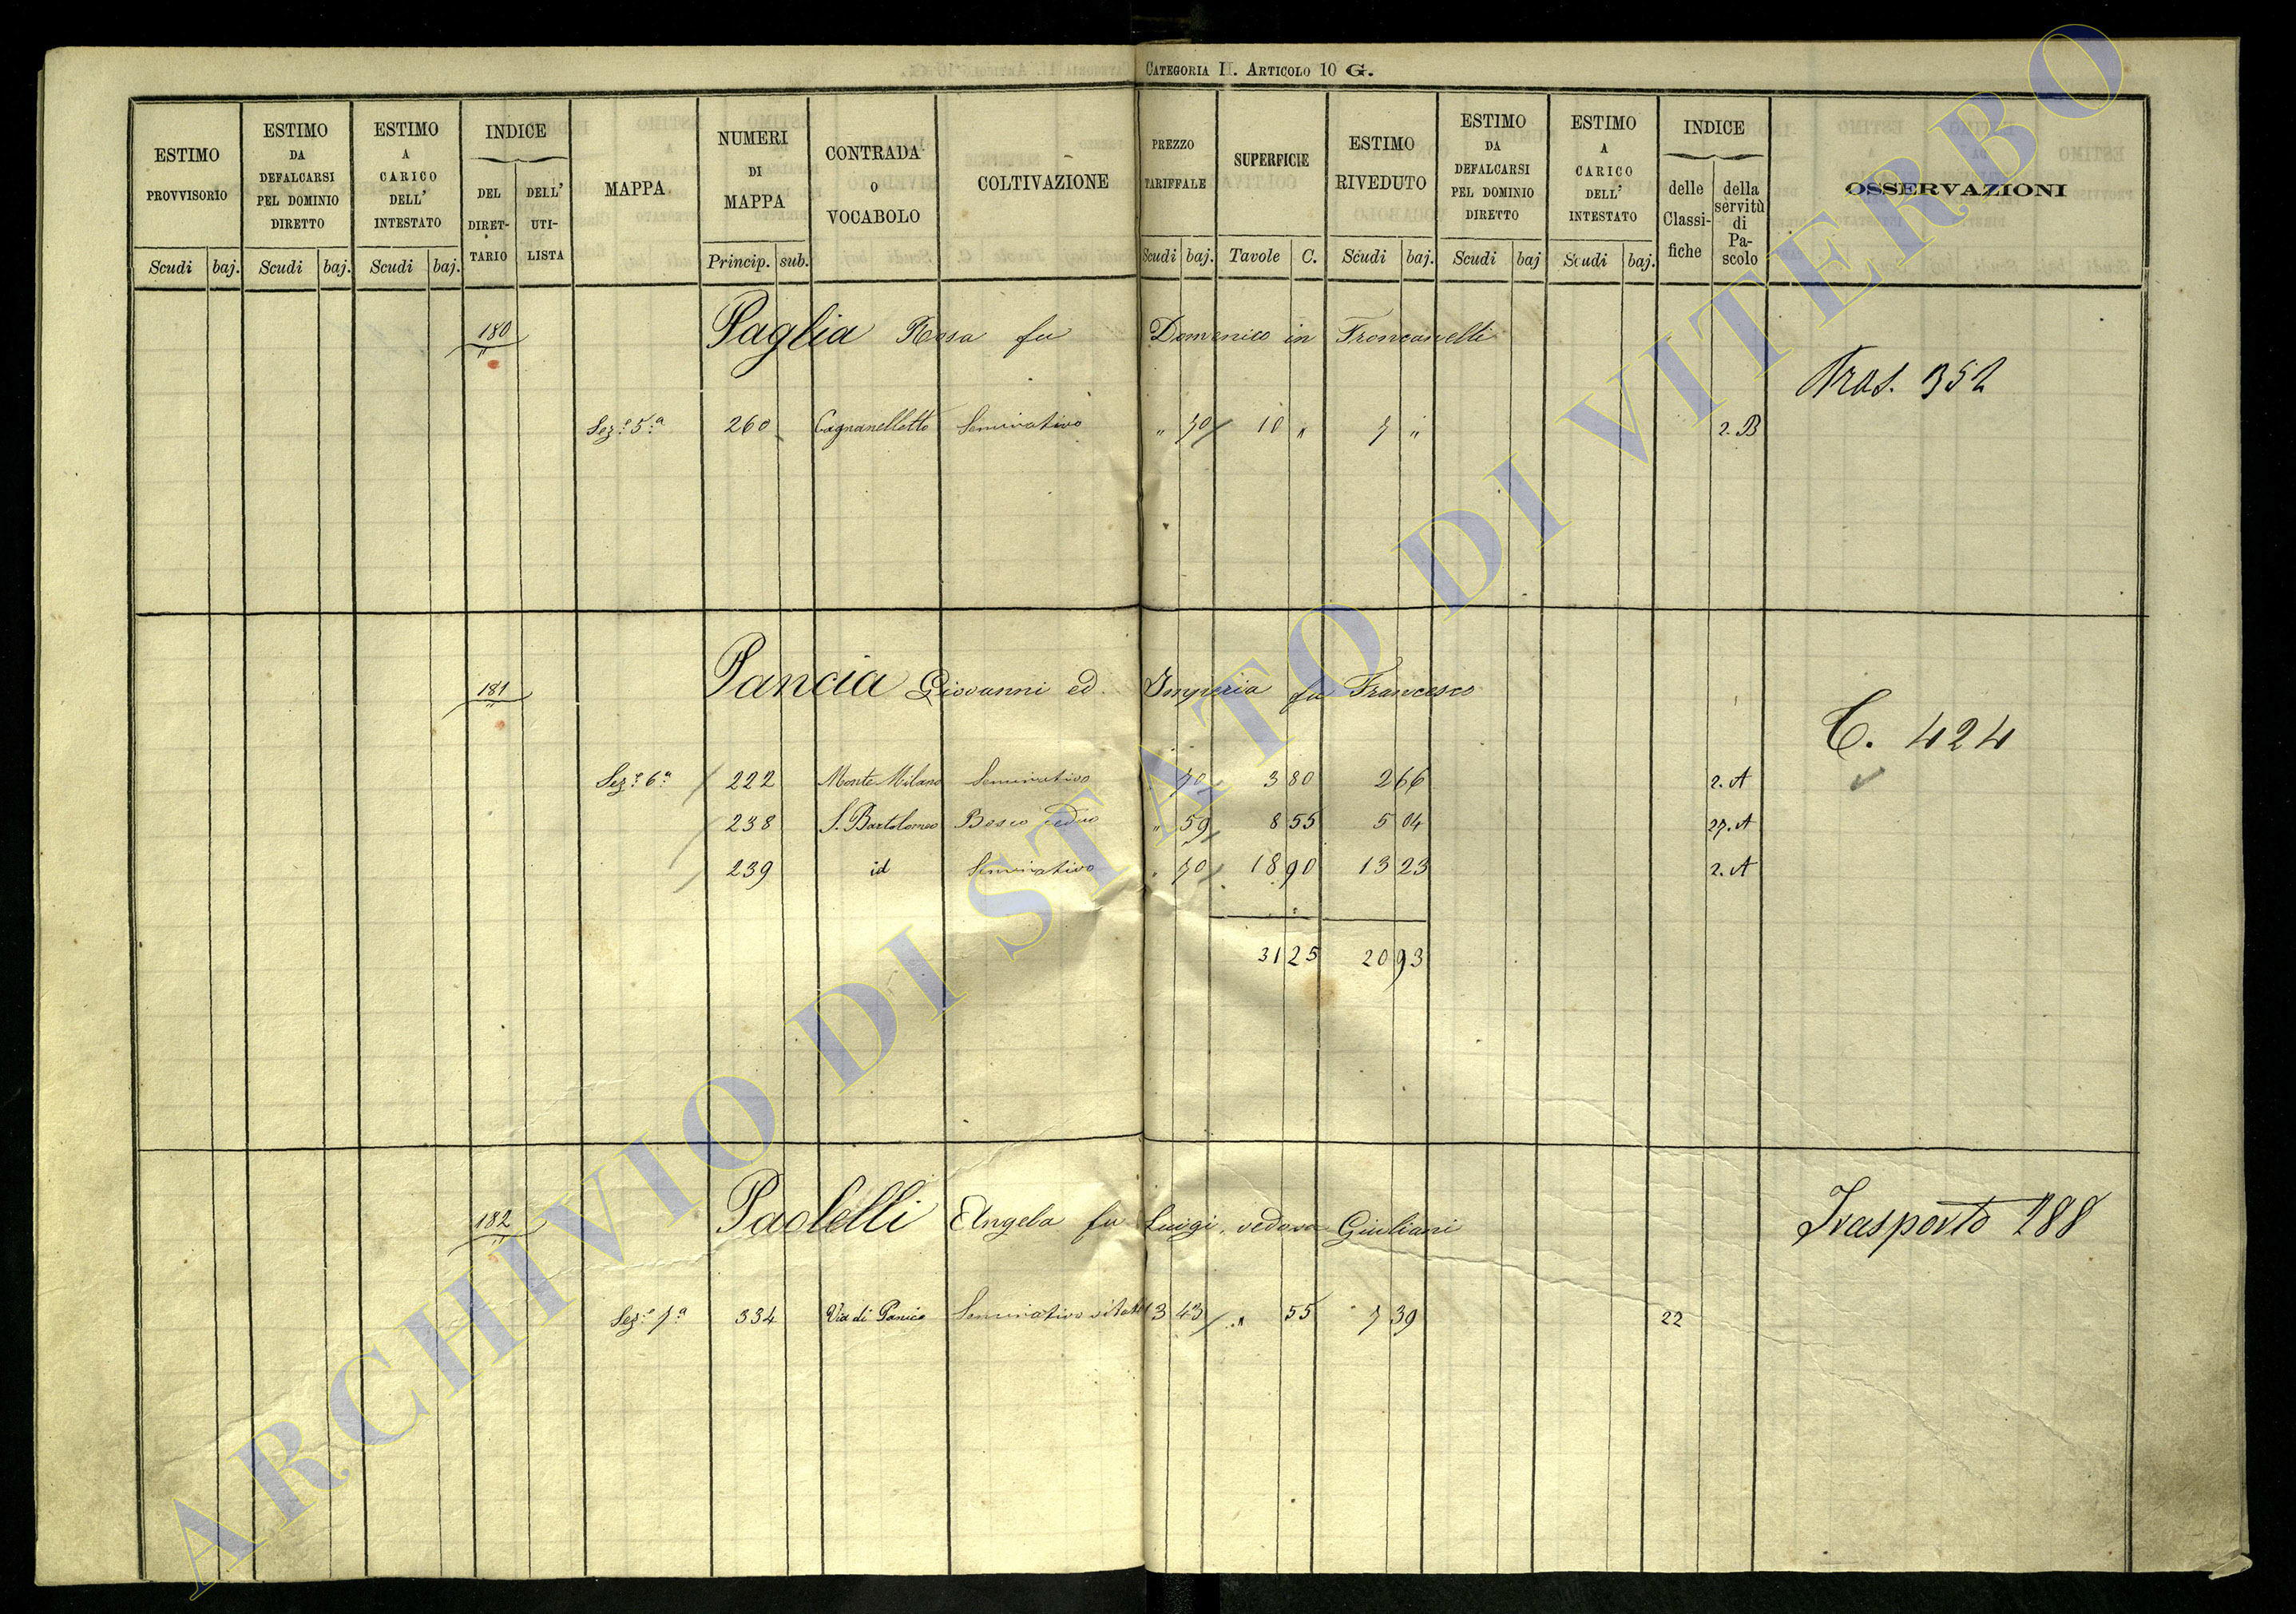 CATEGORIA II. ARTICOLO 10 G.
ESTIMO PROVVISORIO Scudi baj.
ESTIMO DA DEFALCARSI PEL DOMINIO DIRETTO Scudi baj.
ESTIMO A CARICO DELL' INTESTATO Scudi baj.
INDICE DEL DIRET-TARIO DELL' UTI-LISTA
MAPPA
NUMERI DI MAPPA Princip. sub.
CONTRADA O VOCABOLO
COLTIVAZIONE
PREZZO TARIFFALE Scudi baj.
SUPERFICIE Tavole C.
ESTIMO RIVEDUTO Scudi baj.
ESTIMO DA DEFALCARSI PEL DOMINIO DIRETTO Scudi baj
ESTIMO A CARICO DELL' INTESTATO Scudi baj.
INDICE delle Classi-fiche della servitù di Pa-scolo
OSSERVAZIONI
180 Paglia Rosa fu Domenico in Troncarelli
Tras. 352
Sez.e 5.a 260 Cagnanelletto Seminativo " 70 10 " 7 " 2. B
181 Pancia Giovanni ed Imperia fu Francesco
C. 424
Sez.e 6.a 222 Monte Milano Seminativo " 70 3 80 2 66 2. A
238 S. Bartolomeo Bosco ceduo " 59 8 55 5 04 27. A
239 id Seminativo " 70 18 90 13 23 2. A
31 25 20 93
182 Paolelli Angela fu Luigi, vedova Giuliani
Trasporto 288
Sez.e 7.a 334 Via di Panico Seminativo vitato 13 43 " 55 7 39 22
ARCHIVIO DI STATO DI VITERBO